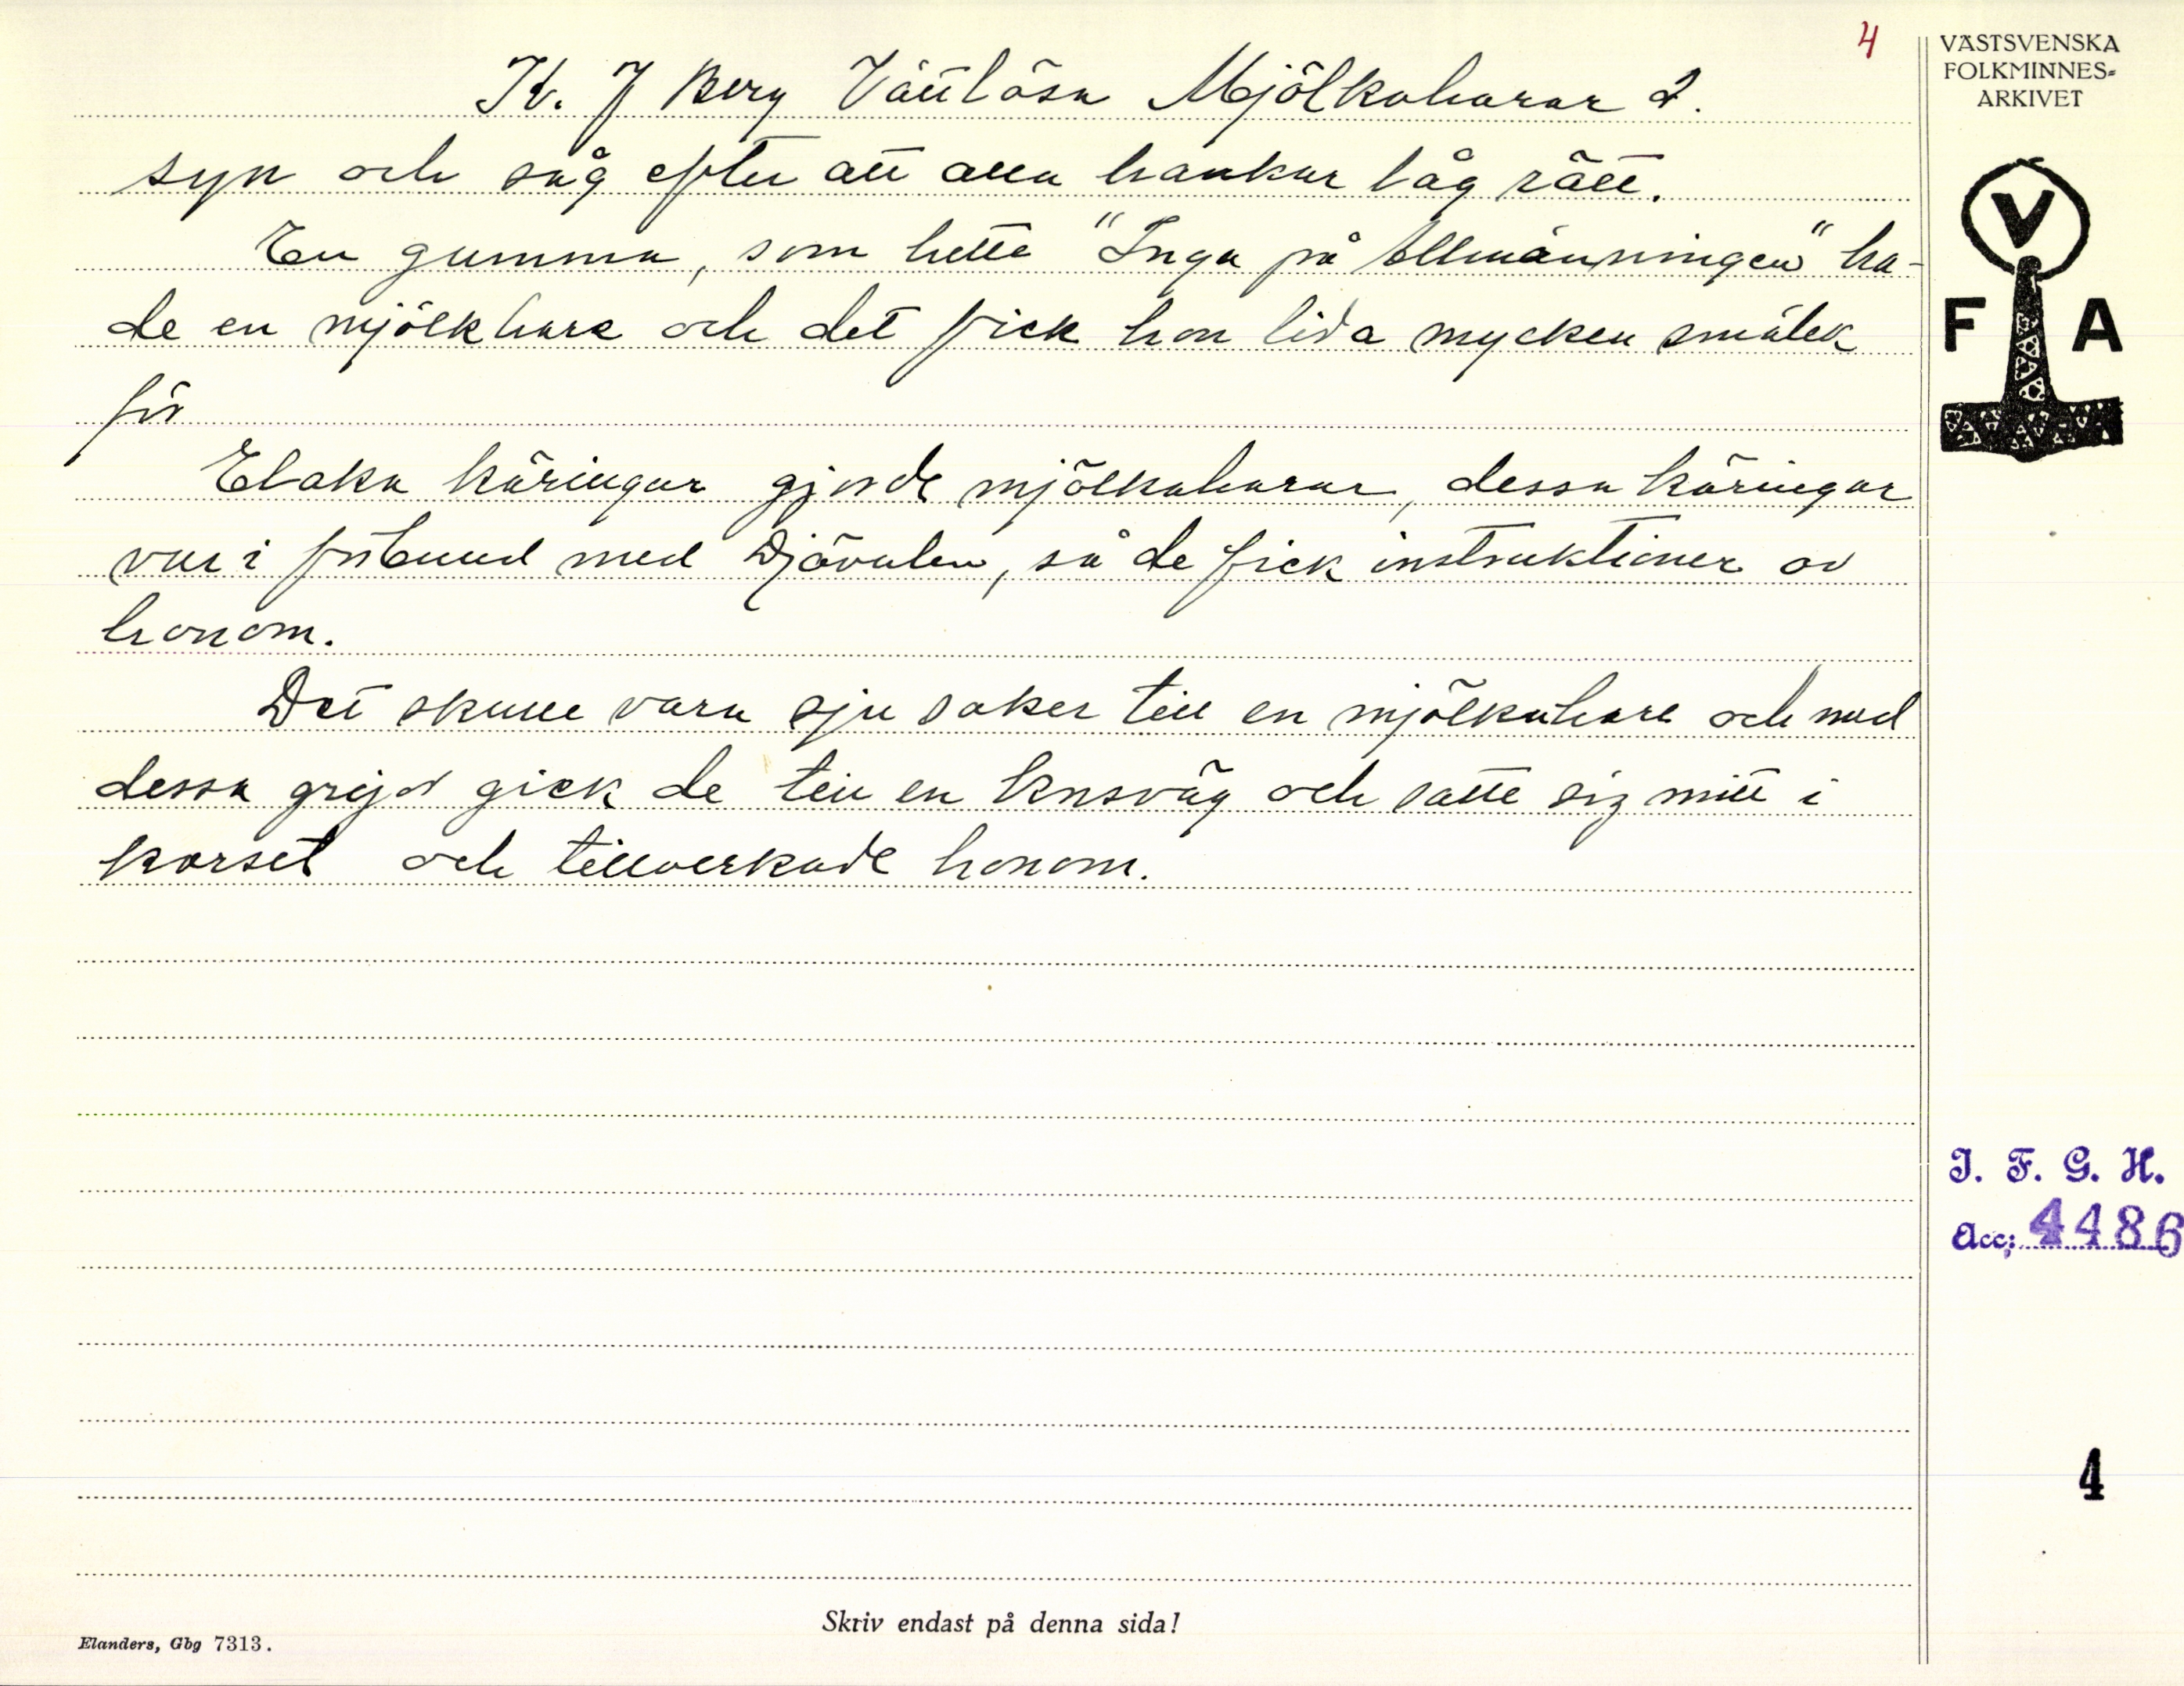 4
K. J Berg Vättlösa Mjölkaharar 2.
syn och såg efter att alla hankar låg rätt.
En gumma, som hette "Inga på Allmänningen" ha-
de en mjölkhare och det fick hon lida mycken smälek
för
Elaka käringar gjorde mjölkaharar, dessa käringar
var i förbund med Djävulen, så de fick instruktioner av
honom.
Det skulle vara sju saker till en mjölkahare och med
dessa grejor gick de till en korsväg och satte sig mitt i
korset och tillverkade honom.
VÄSTSVENSKA
FOLKMINNES-
ARKIVET
V
F A
I. F. G. H.
Acc; 4486
4
Skriv endast på denna sida!
Elanders, Gbg 7313.